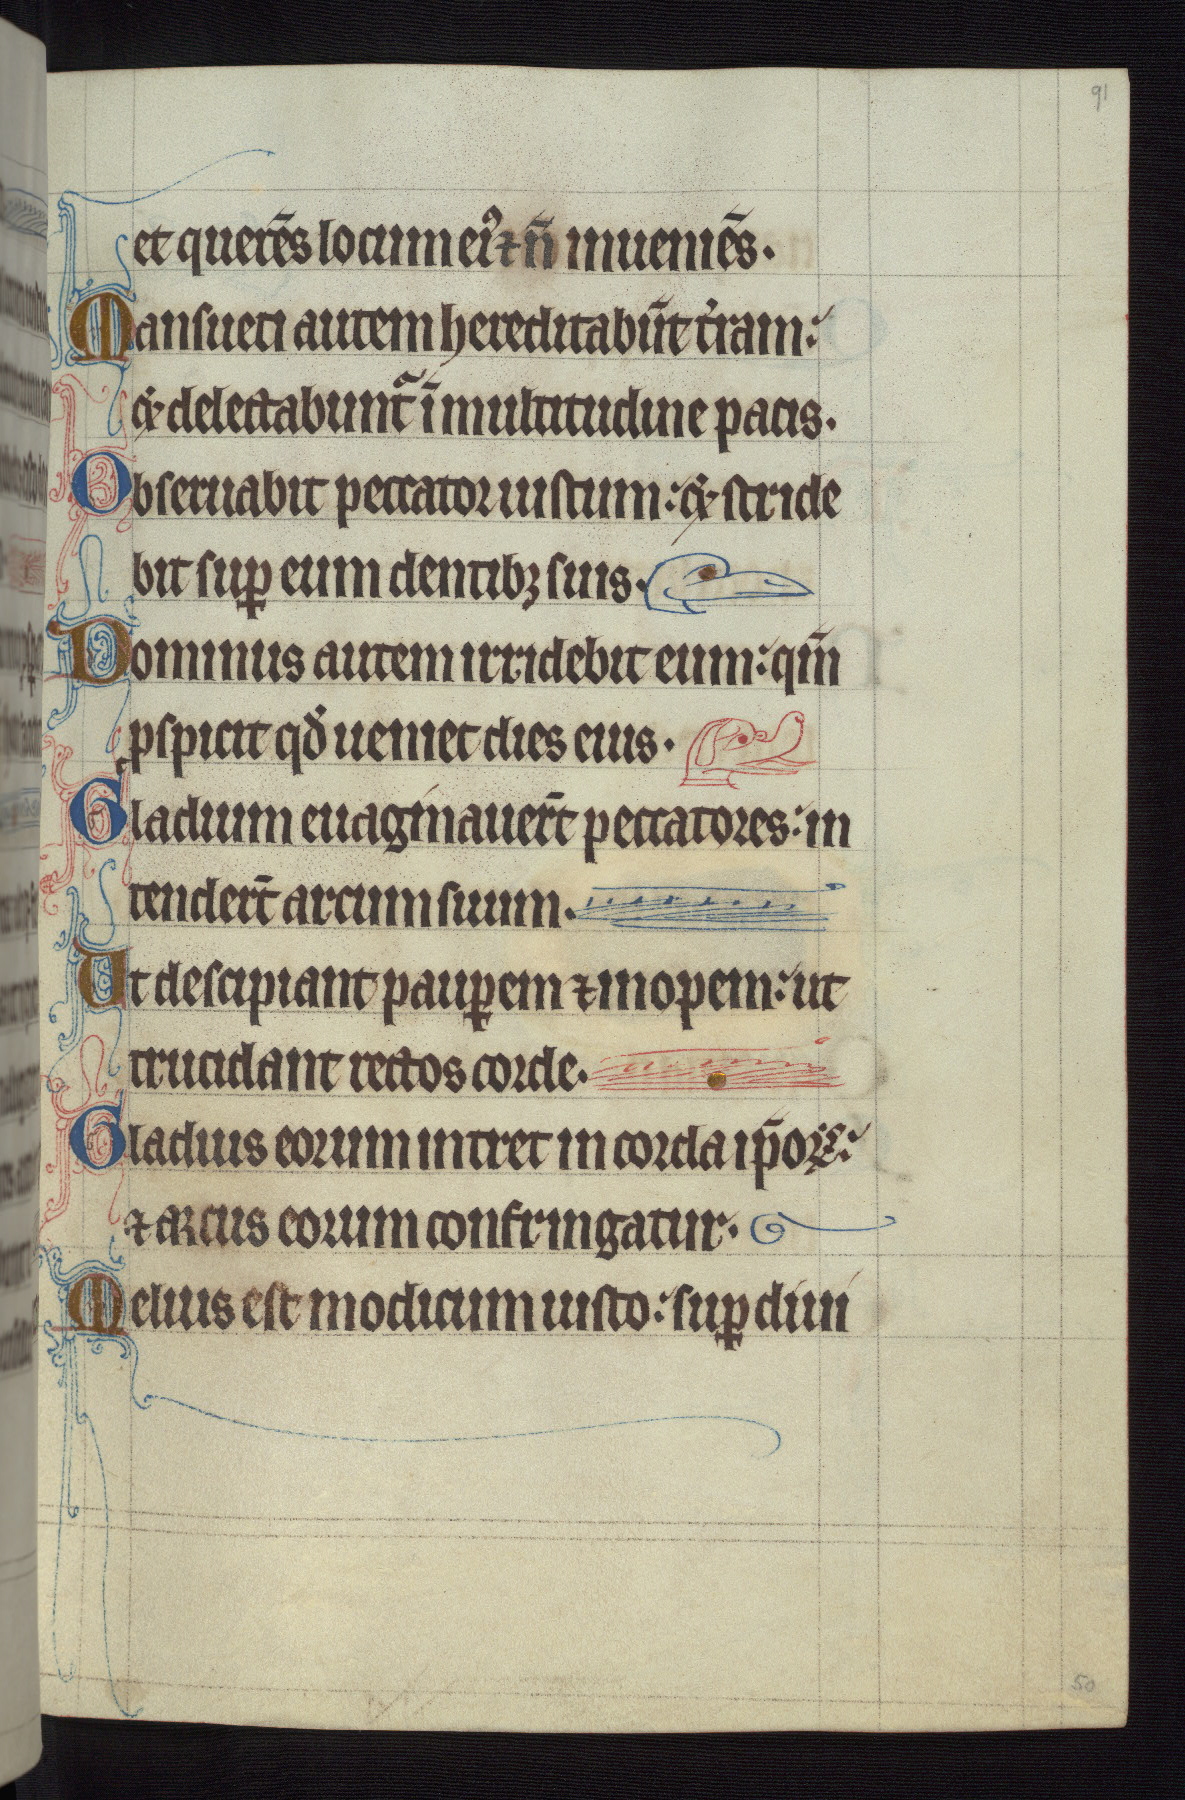 91
et querēs locum ei᷒ ⁊ n̄ inueniēs.
Mansueti autem hereditabūt t̓ram:
⁊ delectabunt᷑ ī multitudine pacis.
Obseruabit peccator iustum: ⁊ stride
bit suꝑ eum dentibꝫ suis.
Dominus autem irridebit eum: qm̄
ꝓspicit qđ ueniet dies eius.
Gladium euaginauer̄t peccatores: in
tender̄t arcum suum.
Ut descipiant pauꝑem ⁊ inopem: ut
trucidant rectos corde.
Gladius eorum intret in corda ip̄oꝝ:
⁊ arcus eorum confringatur.
Melius est modicum iusto: suꝑ diui
50